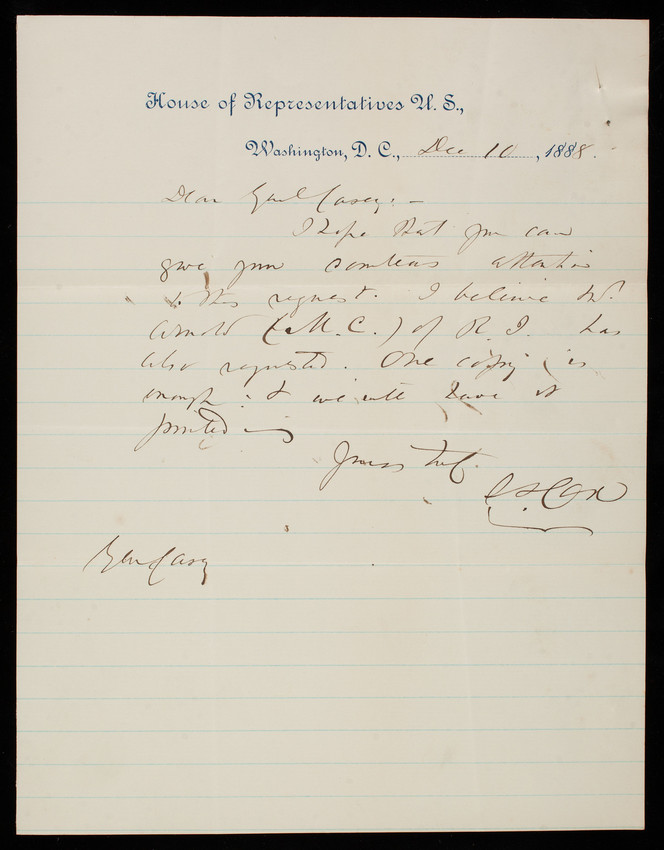 House of Representatives U. S.,
Washington, D. C., Dec 10, 1888.
Dear Genl Casey: –
I hope that you can
give your attention
to this request. I believe
Arnold (M. C.) of R. I. has
also requested. One copy is
enough: & we will have it
printed
Yours
S S Cox
Gen Casey